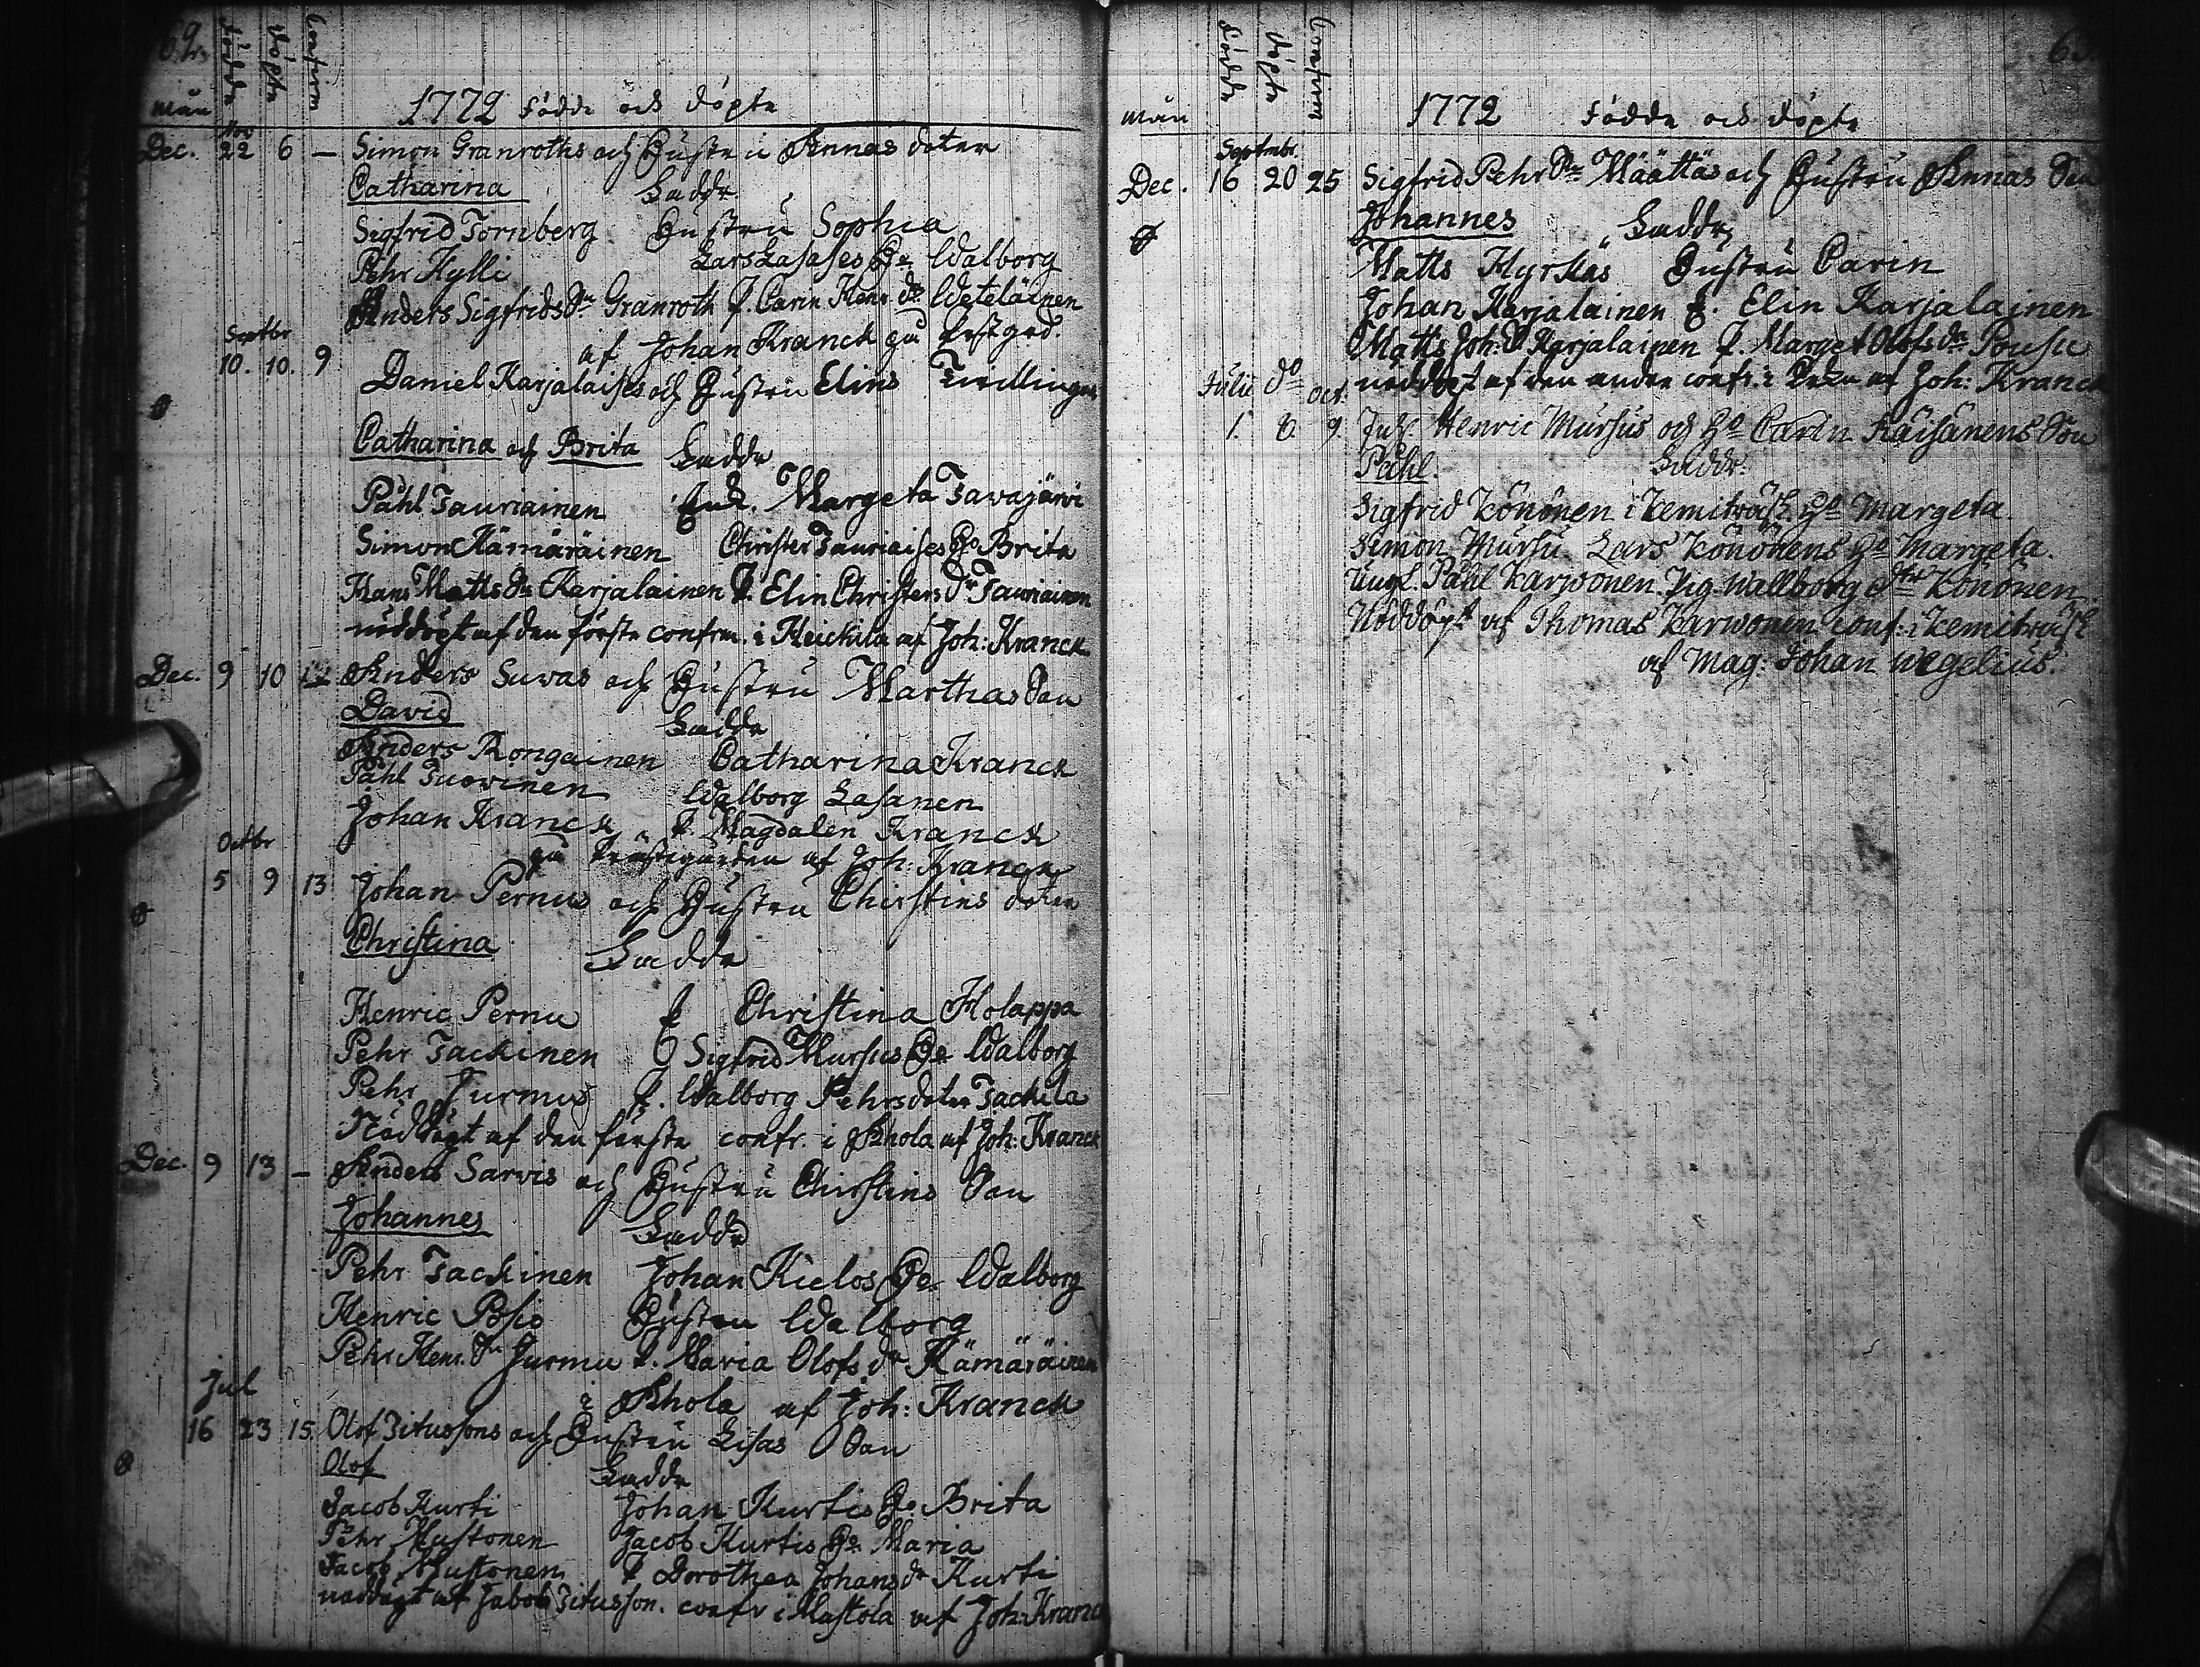 62.
Födde Döpte Confirm
mån 1772 Födde och Döpte
Nov
Dec. 22 6 — Simon Granroths och Hustru Annas doter
Catharina Faddr
Sigfrid Tornberg Hustru Sophia
Pehr Kylli Lars Lasases Ho Walborg
Anders Sigfridsn Granroth P. Carin Henr. dr Weteläinen
af Johan Kranck på Prestgrd.
Septbr
10. 10. 9 Daniel Karjalaises och Hustru Elins Twillingar
Catharina och Brita Faddr
Påhl Tauriainen Enk. Margeta Tavajärvi
Simon Kämäräinen Christer Tauriaises Ho Brita
Hans Matts Sn Karjalainen P. Elin Christers dr Tauriainen
nöddöpt af den förste confirm. i Heickila af Joh: Kranck
Dec. 9 10 Anders Suwas och Hustru Marthas Son
David Faddr
Anders Rongainen Catharina Kranck
Påhl Tuovinen Walborg Lasanen
Johan Kranck P. Magdalen Kranck
på Prästegården af Joh: Kranck
Octbr
5 9 13 Johan Pernus och Hustru Christins doter
Christina Faddr
Henric Pernu P Christina Holappa
Pehr Tackinen Sigfrid Mursus Ho Walborg
Pehr Jurmus P. Walborg Pehrsdoter Tackila
Nöddöpt af den förste confr. i Ahola af Joh: Kranck
Dec. 9 13 — Anders Sarvis och Hustru Christins Son
Johannes Faddr
Pehr Tackinen Johan Kielos Ho Walborg
Henric Posio Hustru Walborg
Pehr Henr. Sn Jurmu P. Maria Olofs dr Kämäräinen
i Ahola af Joh: Kranck
Jul
16 23 15 Olof Titussons och Hustru Lisas Son
Olof Faddr
Jacob Kurti Johan Kurtis Ho Brita
Pehr Mustonen Jacob Kurtis Ho Maria
Jacob Mustonen P Dorothea Johans dr Kurti
nöddöpt af Jakob Titusson. confr i Mustola af Joh: Kranck
63
Födde Döpte Confirm
mån 1772 Födde och Döpte
Septembr.
Dec. 16 20 25 Sigfrid Pehr Sn Määttäs och Hustru Annas Son
Johannes Faddr
Matts Hyrkäs Hustru Carin
Johan Karjalainen P. Elin Karjalainen
Matts Joh: S Karjalainen P. Marget Olofs dr Pousu
nöddöpt af den andre confr. i af Joh: Kranck
Julii do Oct.
1. 8. 9. Inh. Henric Mursus och Ho Carin Räisänens Son
Påhl. Faddr:
Sigfrid Könönen i Kemiträsk Ho Margeta.
Simon Mursu. Lars Könönens Ho Margeta.
Ungk. Påhl Karwonen. Pig. Wallborg dtr Könönen.
Nöddöpt af Thomas Karwonen conf. i Kemiträsk
af Mag: Johan Wegelius.